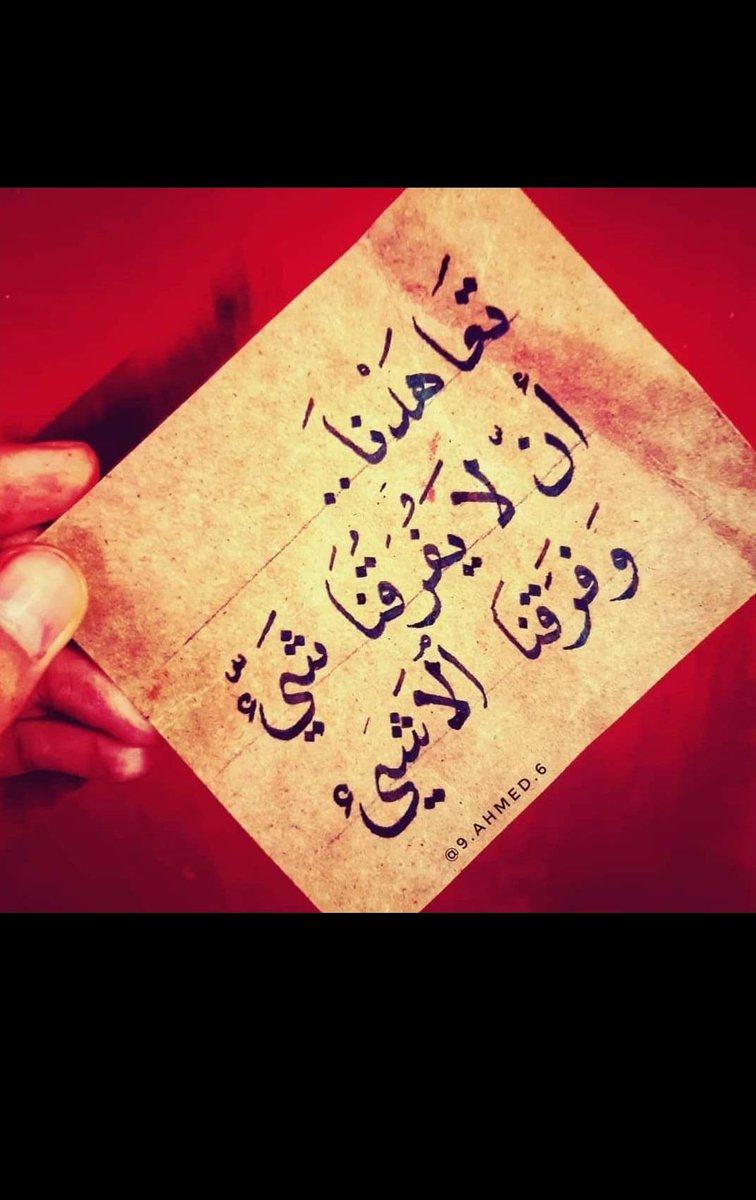 تَعَاهَدْنَا..
أَنّ لّا يَفُرَقُنَا شَيٌّء
وَفَرَقَنا الُاشَيء
@9.AHMED.6